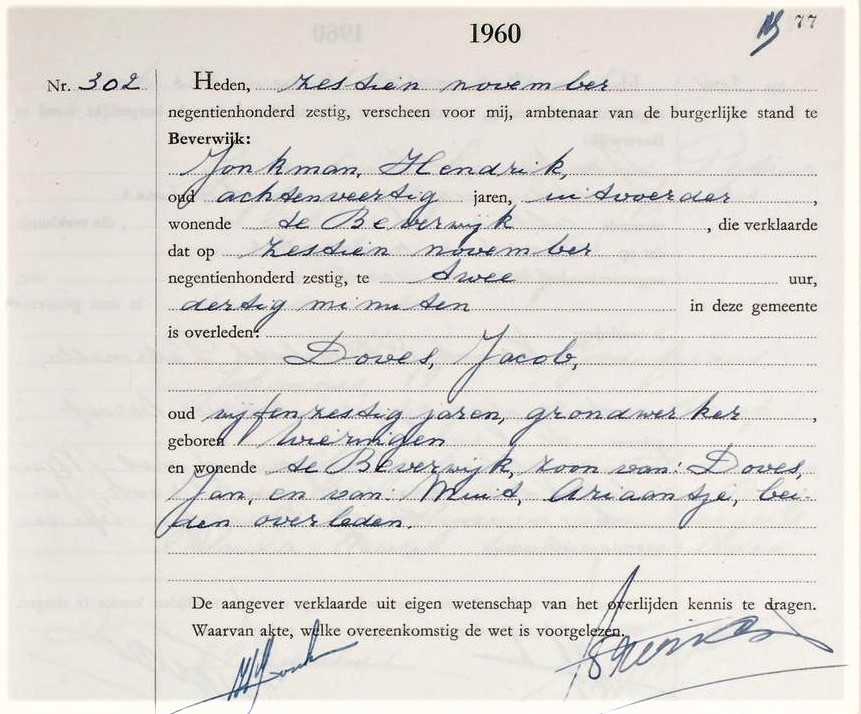 1960
77
Nr. 302 Heden, zestien november
negentienhonderd zestig, verscheen voor mij, ambtenaar van de burgerlijke stand te
Beverwijk:
Jonkman, Hendrik,
oud achtenveertig jaren, uitvoerder ,
wonende te Beverwijk , die verklaarde
dat op zestien november
negentienhonderd zestig, te twee uur,
dertig minuten in deze gemeente
is overleden:
Doves, Jacob,
oud vijfenzestig jaren, grondwerker ,
geboren Wieringen
en wonende te Beverwijk, zoon van: Doves,
Jan, en van: Muit, Ariaantje, bei-
den overleden.
De aangever verklaarde uit eigen wetenschap van het overlijden kennis te dragen.
Waarvan akte, welke overeenkomstig de wet is voorgelezen.